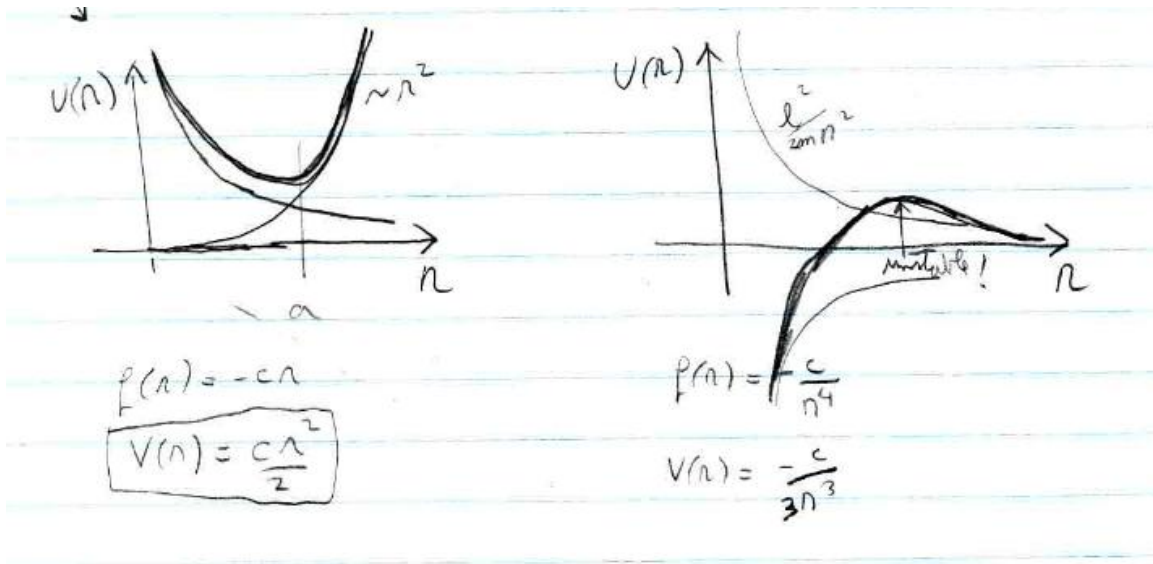 U(r)
~ r²
r
a
f(r) = -cr
V(r) = cr²/2
U(r)
l²/2mr²
unstable!
r
f(r) = -c/r⁴
V(r) = -c/3r³